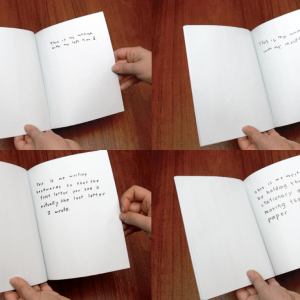 This is me writing
with my left hand
This is me
with my
this is me writing
backwards so that the
first letter you see is
actually the last letter
I wrote.
this is me
by holding the
stationary
moving the
paper